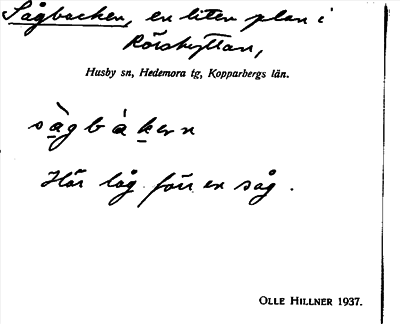 Sågbacken, en liten plan i
Rörshyttan,
Husby sn, Hedemora tg, Kopparbergs län.
sàgbàkern
Här låg förr en såg.
OLLE HILLNER 1937.